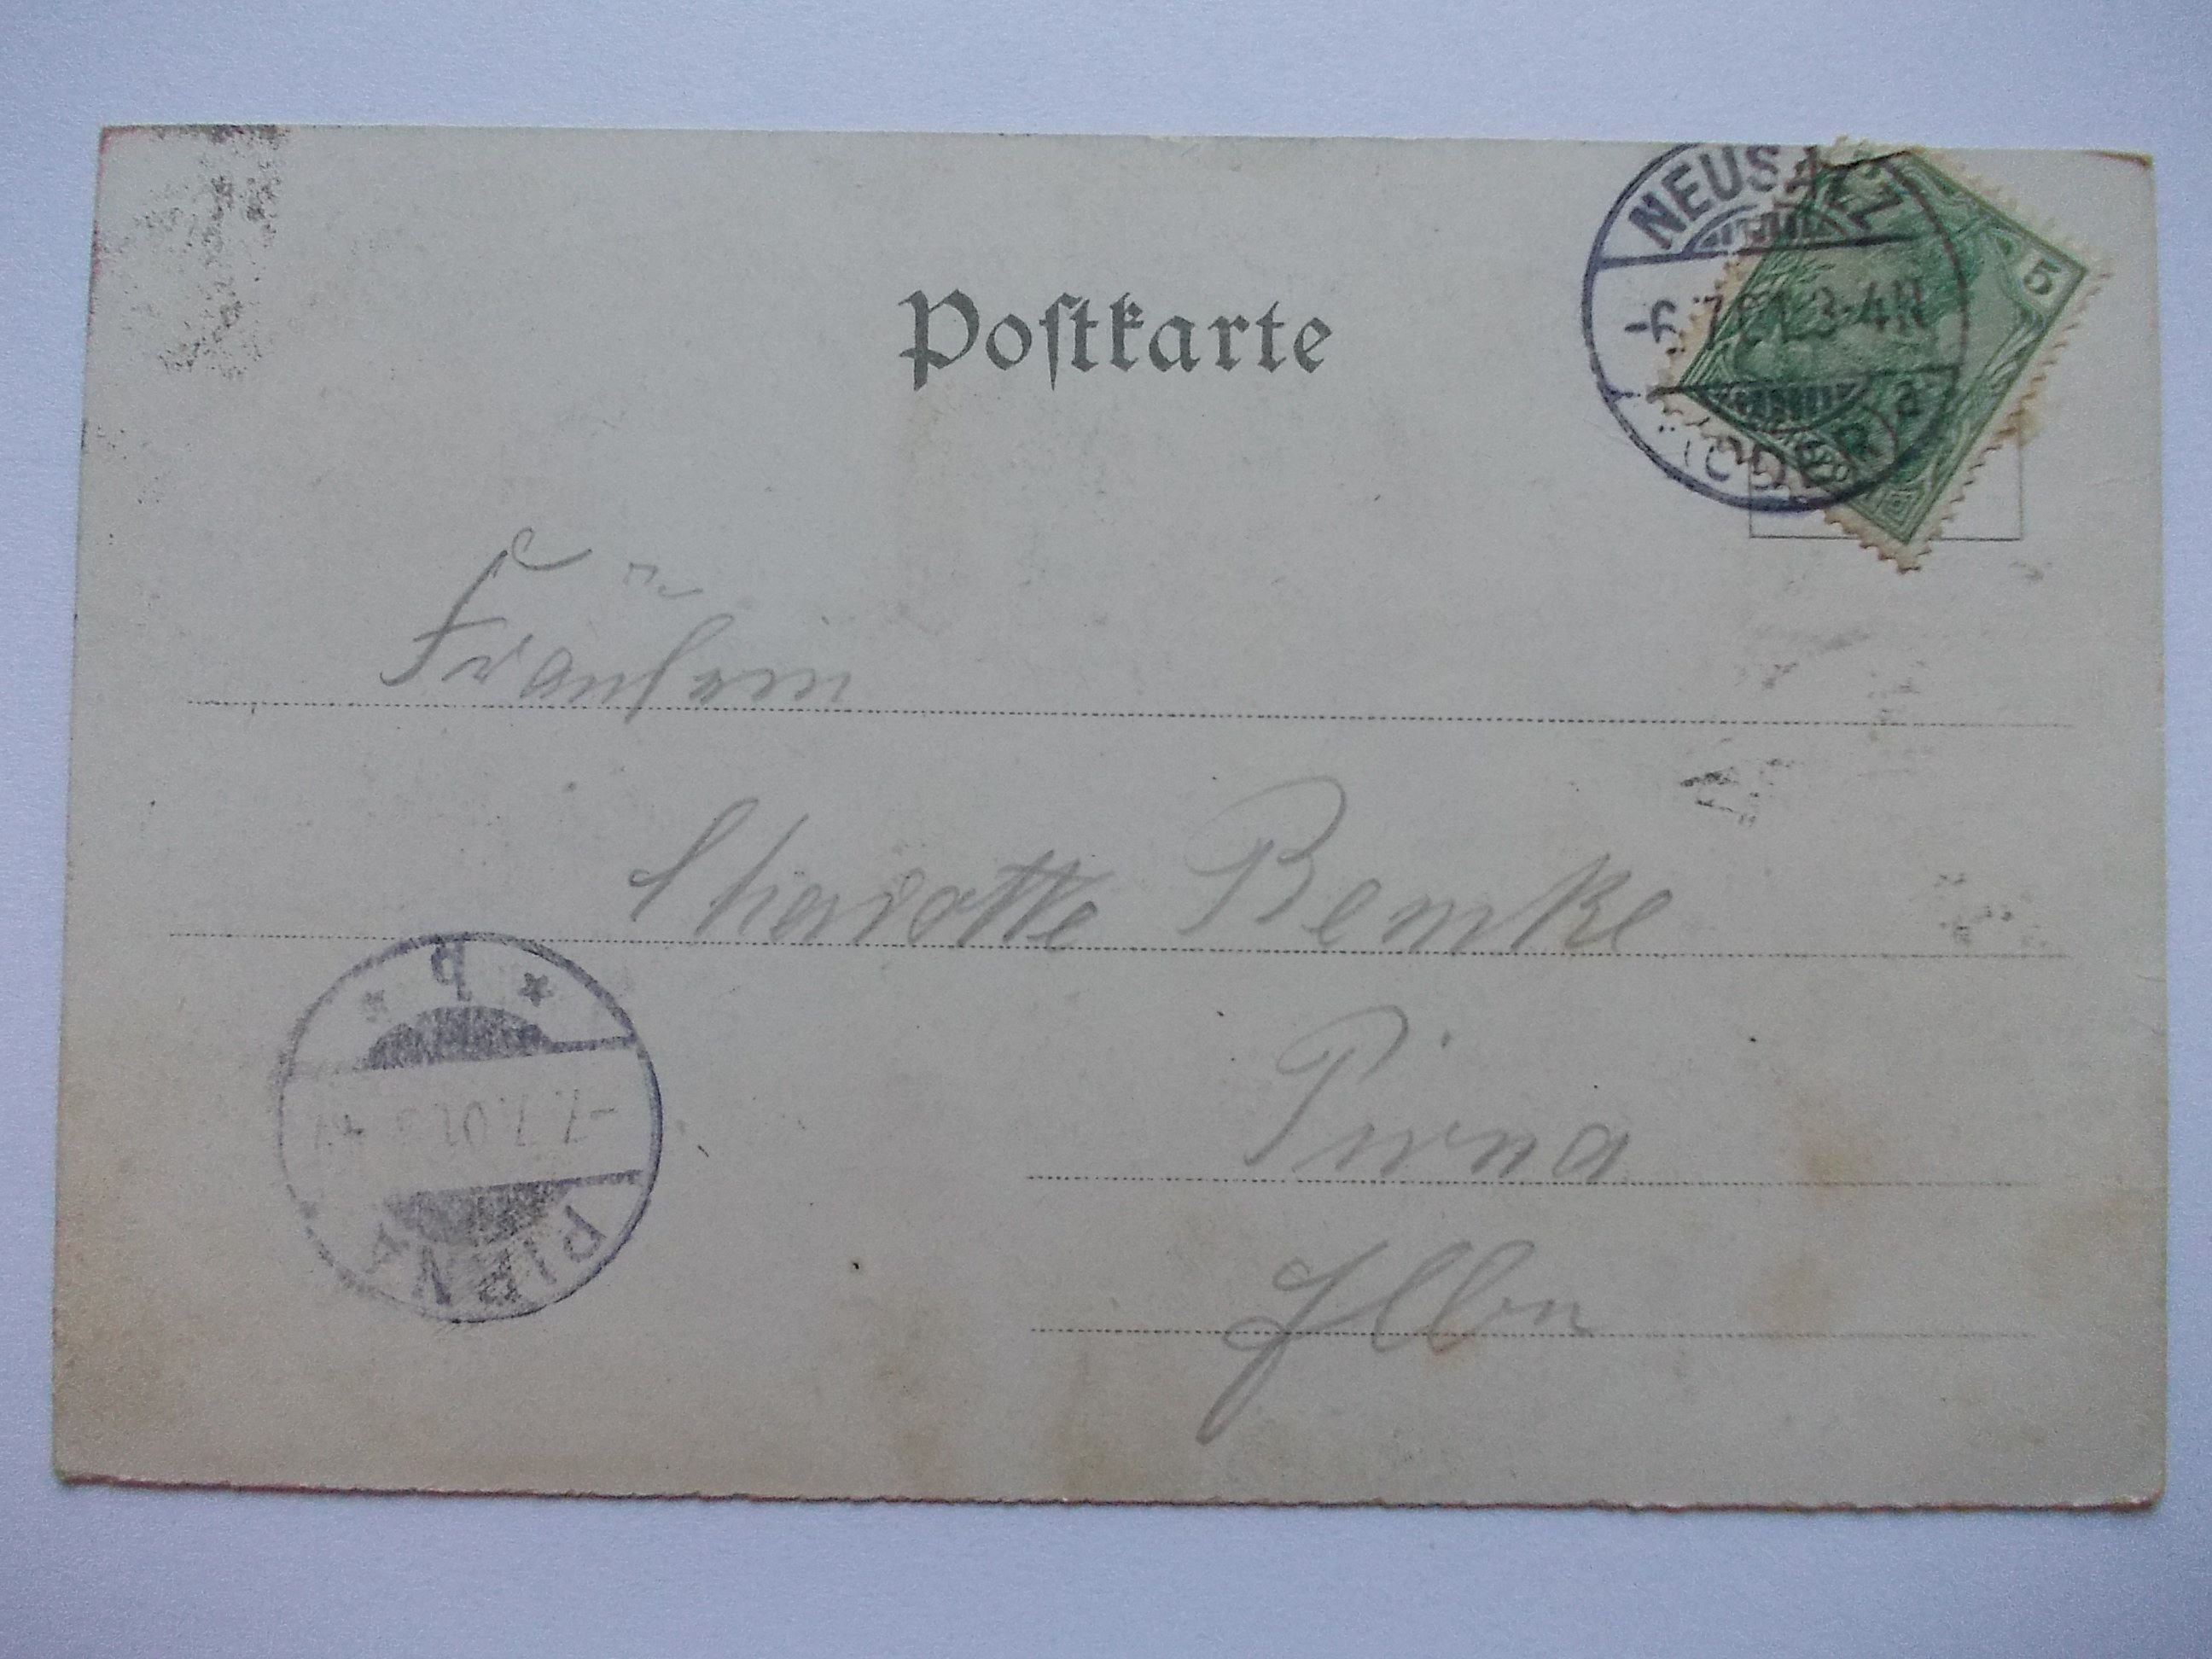 NEUSALZ
-6.7.01.3-4N
a
(ODER)
5
Postkarte
Fräulein
Charlotte Bemke
Pirna
Elbe
* b *
-7.7.01.
PIRNA